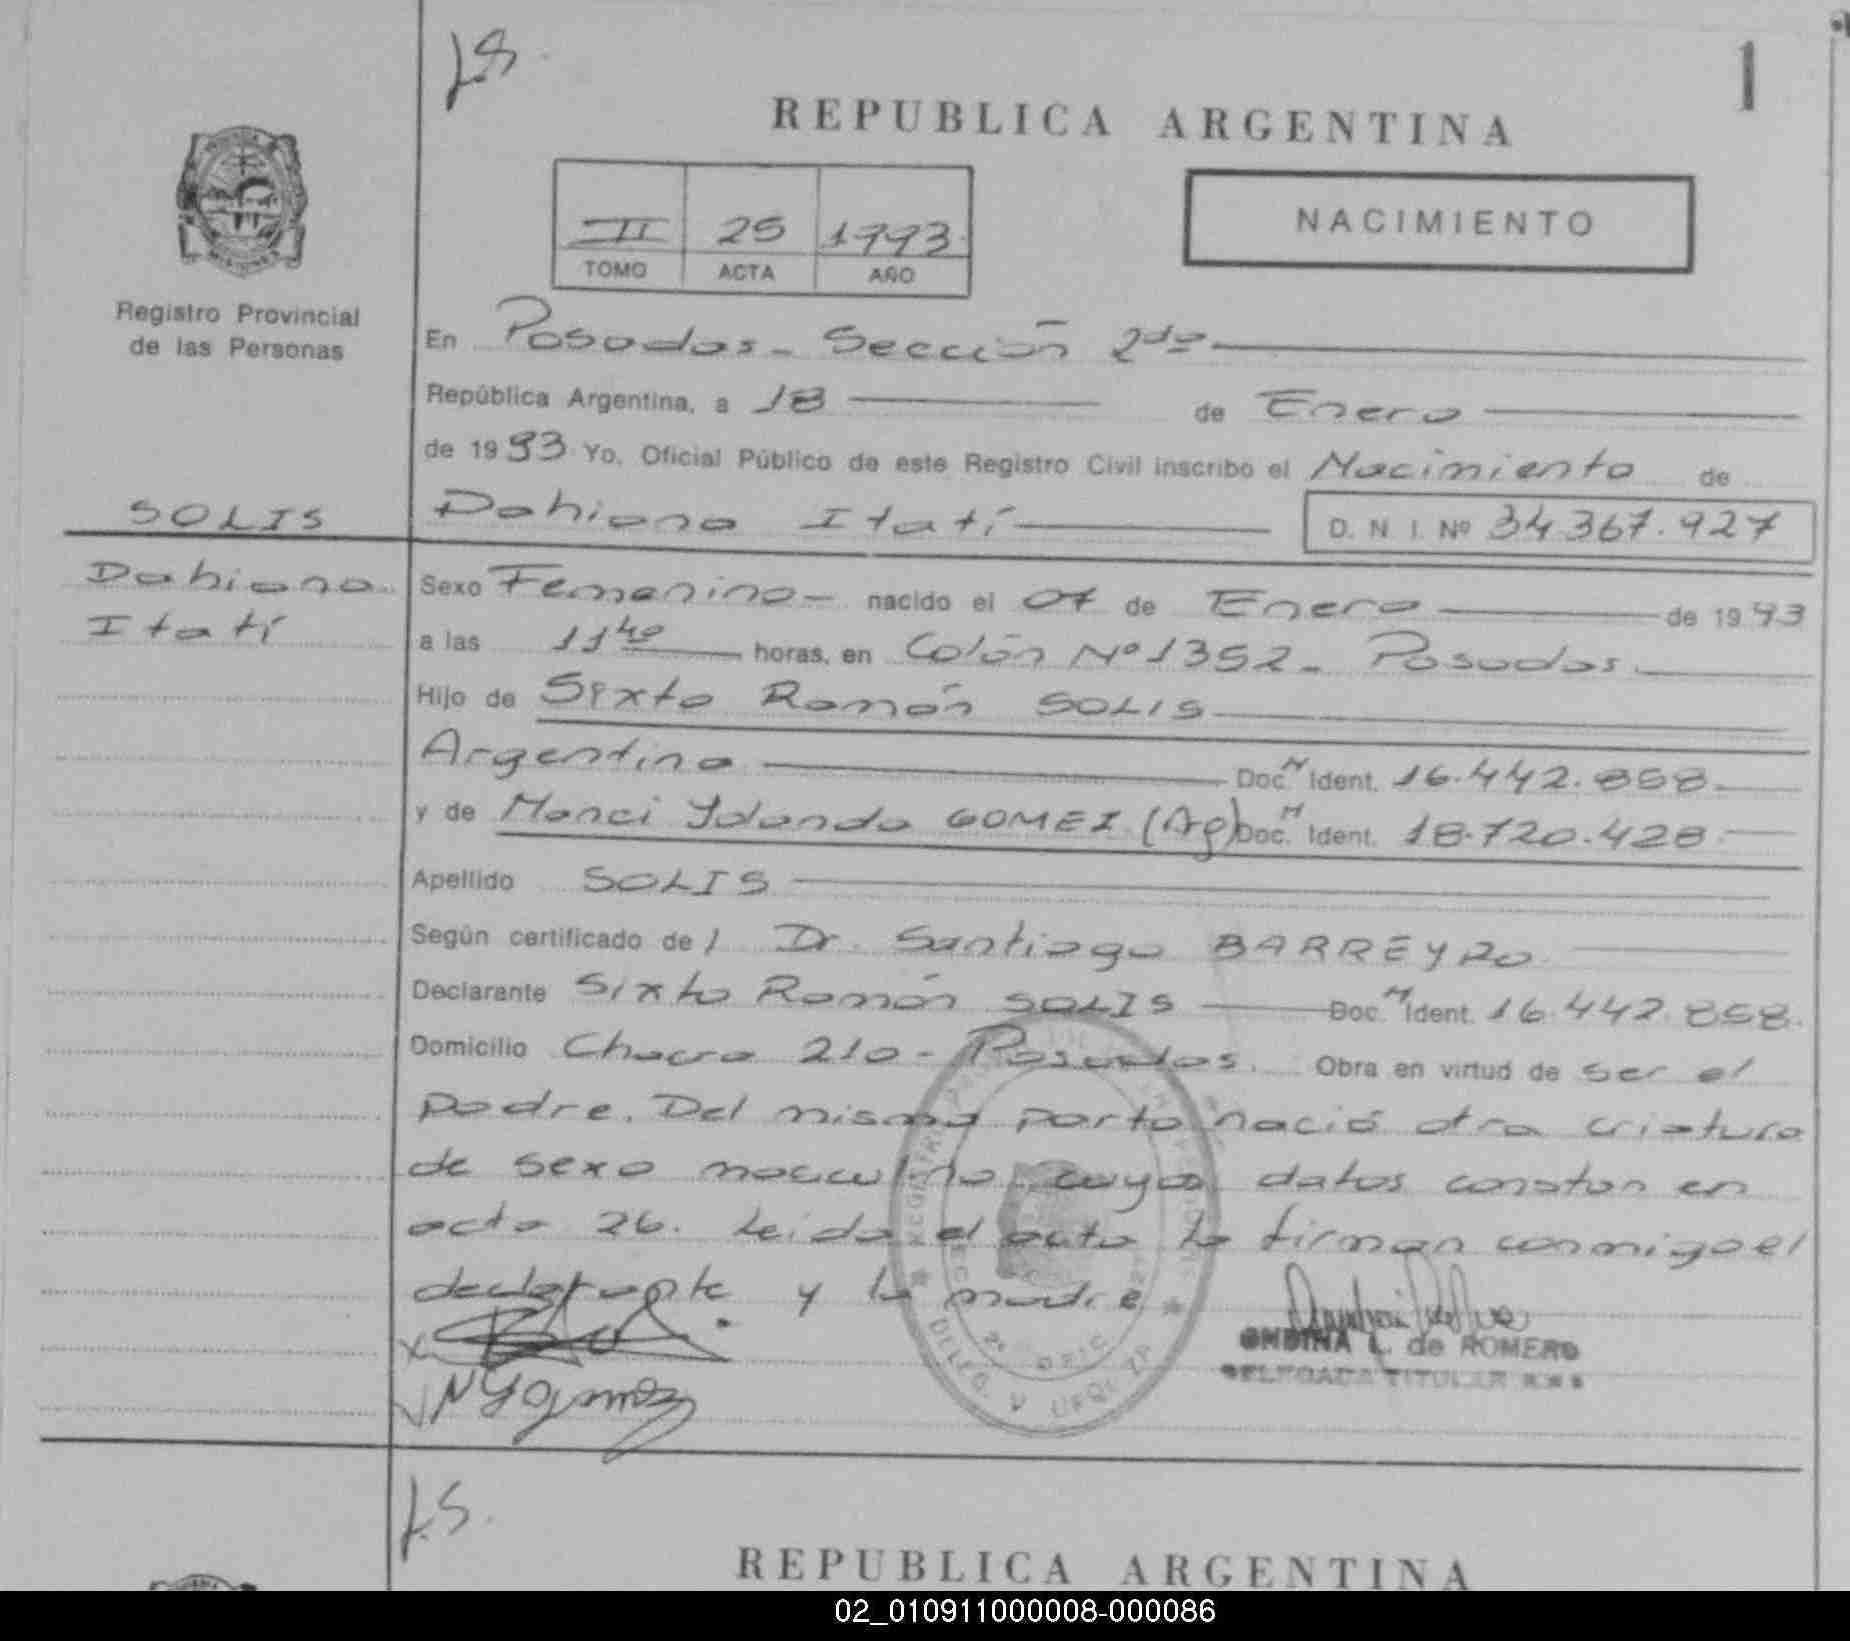 L.S.
1
REPUBLICA ARGENTINA
II 25 1993
TOMO ACTA AÑO
NACIMIENTO
Registro Provincial
de las Personas
En Posadas - Sección 2da
República Argentina, a 18 de Enero
de 1993 Yo, Oficial Público de este Registro Civil inscribo el Nacimiento de
SOLIS
Dahiana Itatí D. N. I. Nº 34.367.927
Dahiana
Itatí
Sexo Femenino - nacido el 07 de Enero de 1993
a las 11 40 horas, en Colón Nº 1352 - Posadas
Hijo de Sixto Ramón SOLIS
Argentino Doc. N Ident. 16.442.858
y de Manci Yolanda GOMEZ (Ag) Doc. N Ident. 18.720.428
Apellido SOLIS
Según certificado de/ Dr. Santiago BARREYRO
Declarante Sixto Ramón SOLIS Doc. N Ident. 16.442.858.
Domicilio Chacra 210 - Posadas. Obra en virtud de ser el
padre. Del mismo parto nació otra criatura
de sexo masculino cuyos datos constan en
acta 26. Leida el acta la firman conmigo el
declarante y la madre
ONDINA L. de ROMERO
DELEGADA TITULAR
N Y Gomez
L.S.
REPUBLICA ARGENTINA
02_010911000008-000086